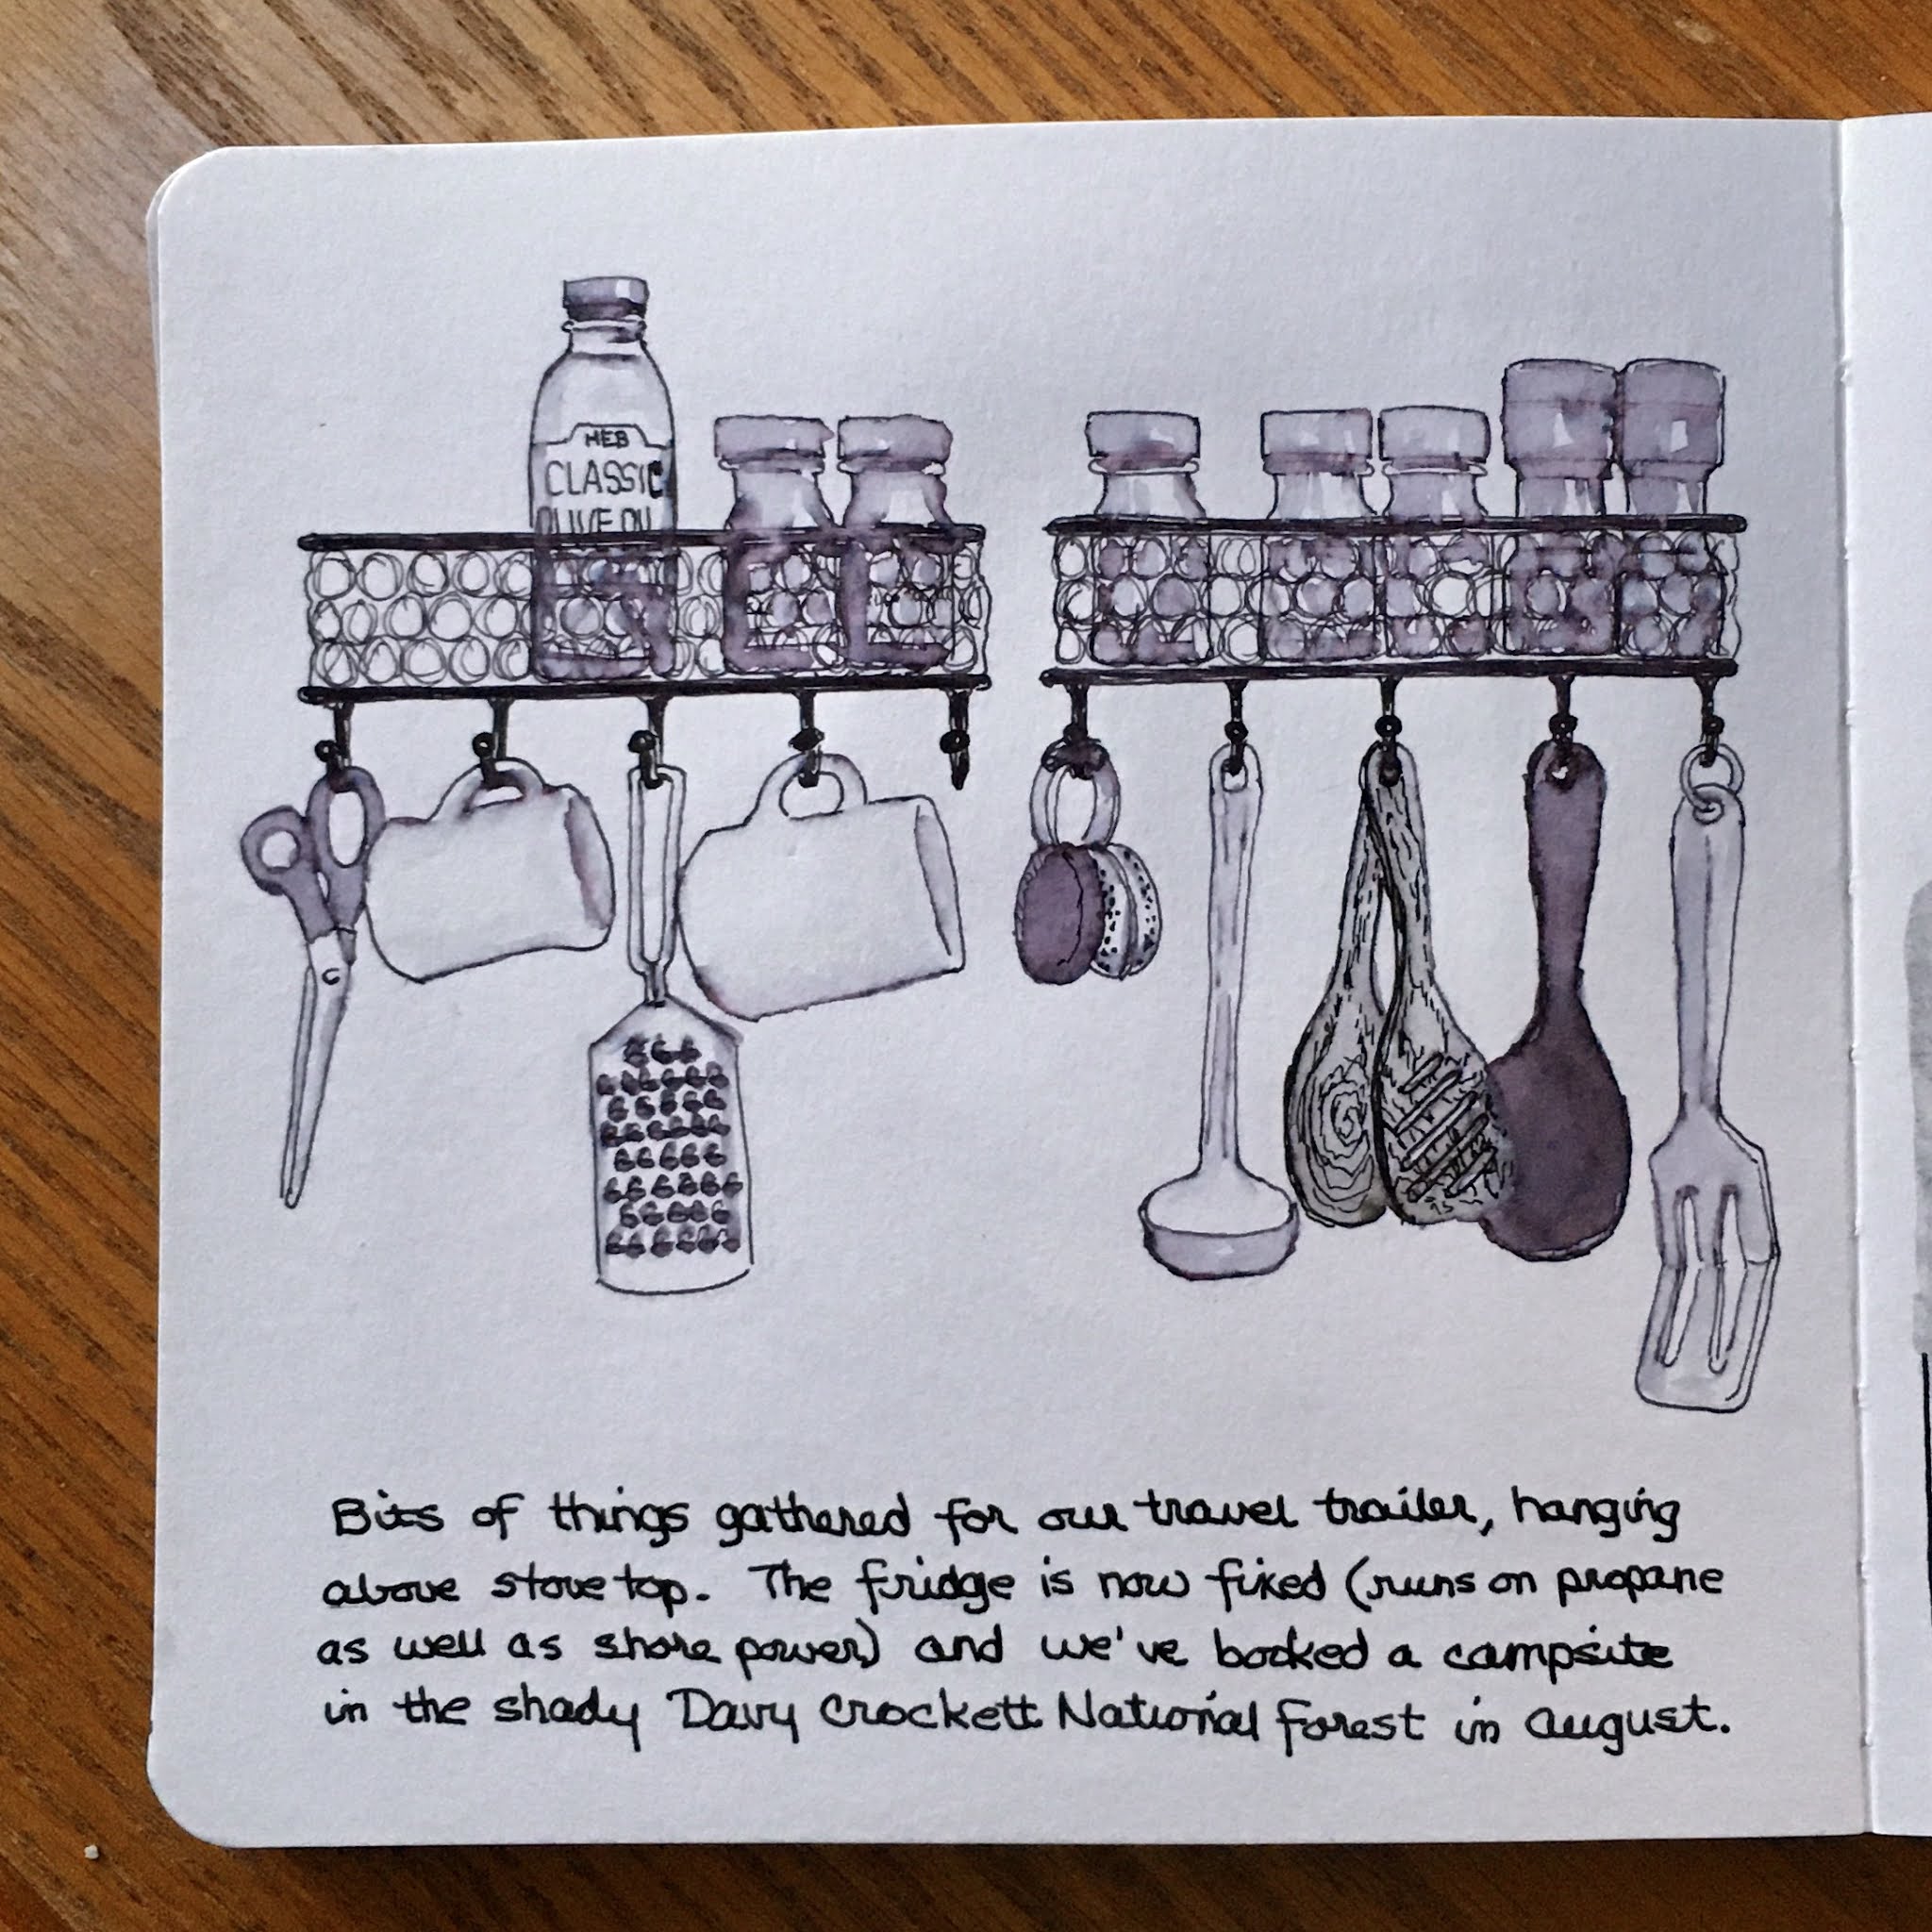 HEB
CLASSIC
OLIVE OIL
Bits of things gathered for our travel trailer, hanging
above stove top. The fridge is now fixed (runs on propane
as well as shore power) and we've booked a campsite
in the shady Davy Crockett National Forest in august.